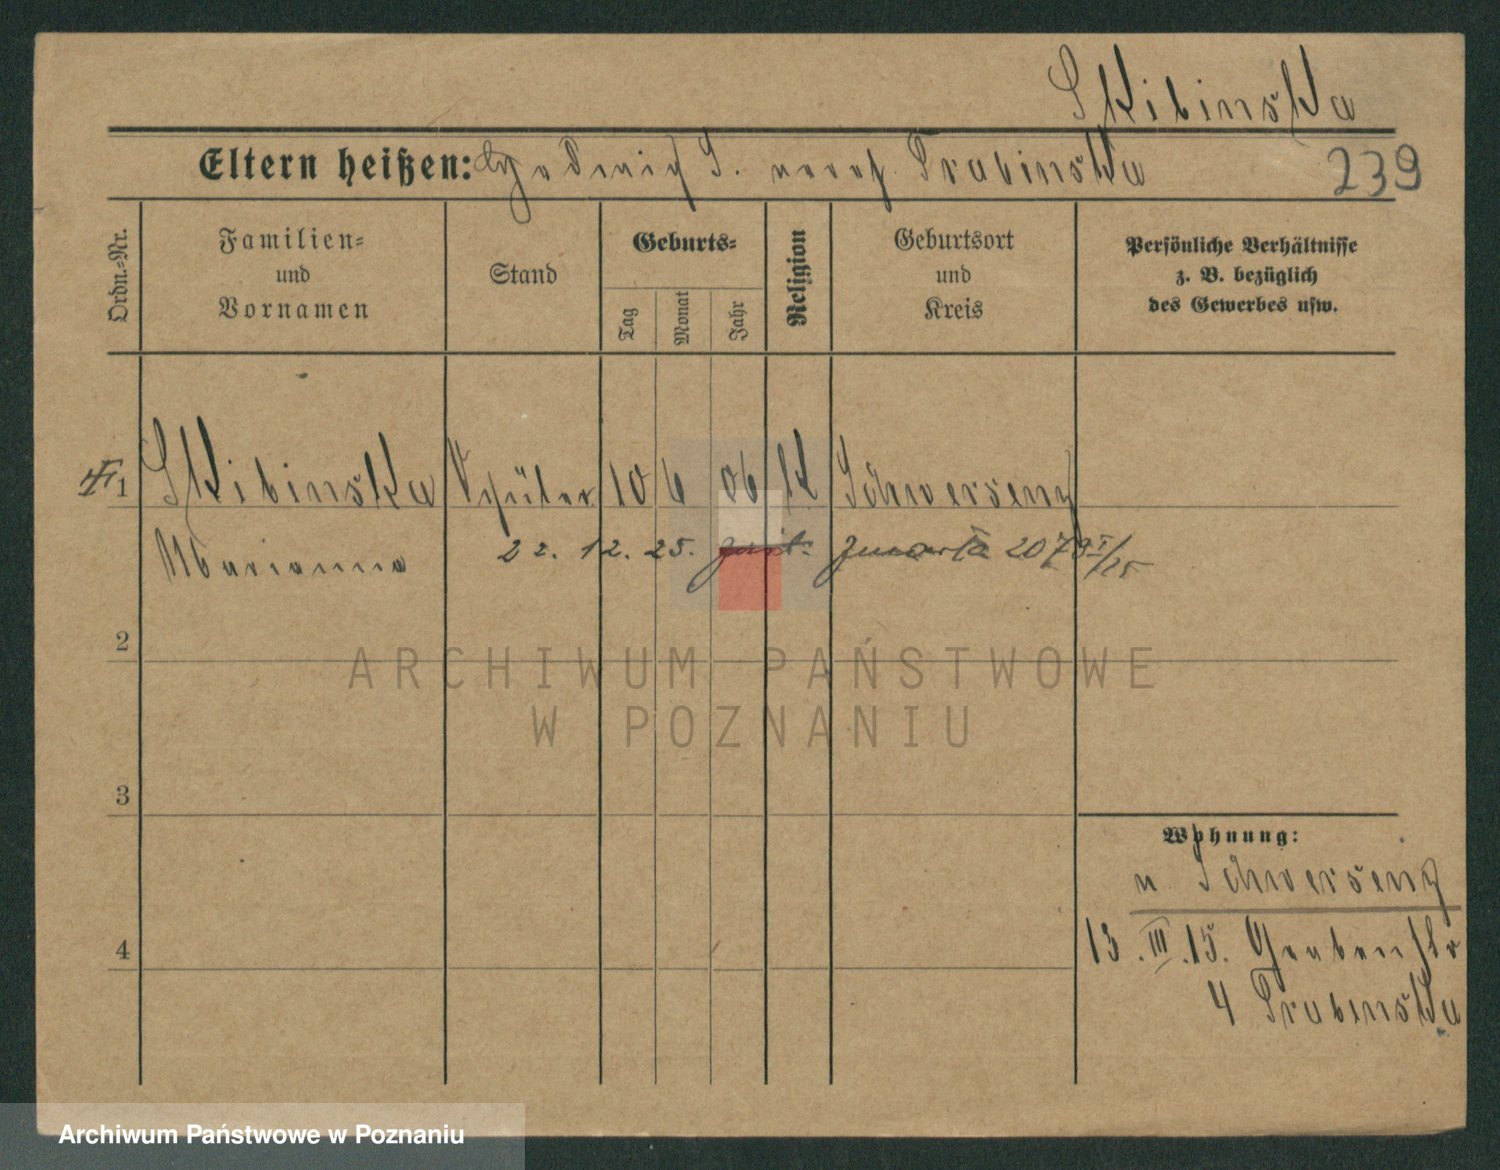 Skibinska
Eltern heißen: Hedwig S. verh. Drabinska 239
Ordn.-Nr.
Familien-
und
Vornamen
Stand
Geburts-
Tag
Monat
Jahr
Religion
Geburtsort
und
Kreis
Persönliche Verhältnisse
z. B. bezüglich
des Gewerbes usw.
1 Skibinska Schüler 10 6 06 K Schwersenz
Marianna 22. 12. 25. zmarła 2079
2
ARCHIWUM PAŃSTWOWE
W POZNANIU
3
Wohnung:
n. Schwersenz
4
13. III. 15. Grabenstr
4 Drabinska
Archiwum Państwowe w Poznaniu